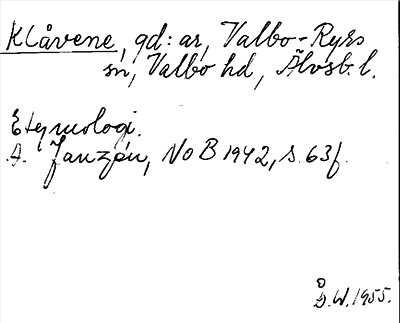 Klåvene, gd: ar, Valbo-Ryrs
sn, Valbo hd, Älvsb. l.
Etymologi.
A. Janzén, NoB 1942, s. 63f.
D.W. 1955.